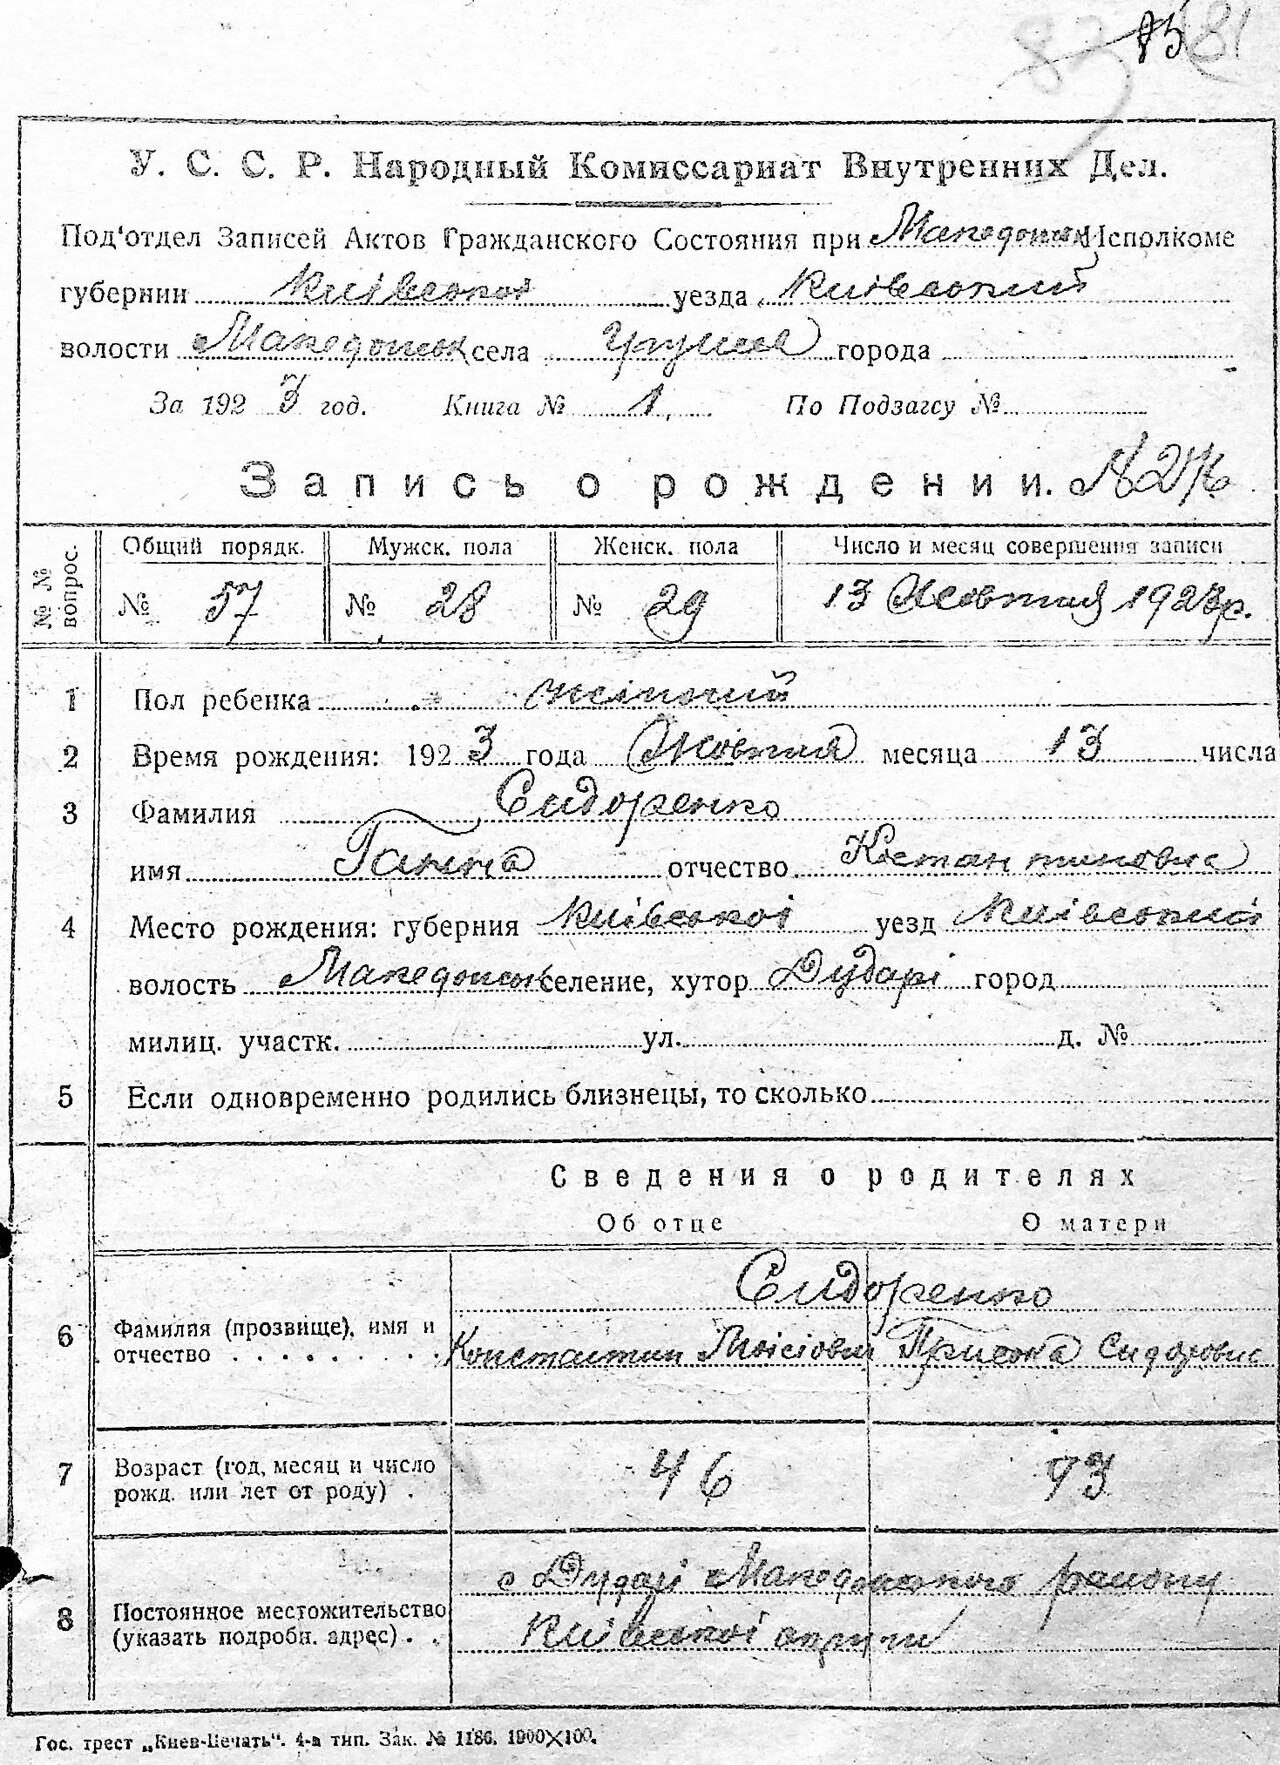 83 81
У. С. С. Р. Народный Комиссариат Внутренних Дел.
Под'отдел Записей Актов Гражданского Состояния при Македонск. Исполкоме
губернии Київської уезда Київський
волости Македонськ села Грушів города
За 1923 год. Книга № 1. По Подзагсу №
Запись о рождении. №
№ № вопрос. Общий порядк. Мужск. пола Женск. пола Число и месяц совершения записи
№ 57 № 28 № 29 13 Жовтня 1923 р.
1 Пол ребенка жіночий
2 Время рождения: 1923 года Жовтня месяца 13 числа
3 Фамилия Сидоренко
имя Ганна отчество Констан тиновна
4 Место рождения: губерния Київської уезд Київський
волость Македонськ селение, хутор Дударі город
милиц. участк. ул. д. №
5 Если одновременно родились близнецы, то сколько
Сведения о родителях
Об отце О матери
Сидоренко
6 Фамилия (прозвище), имя и
отчество Константин Приська Сидоровна
7 Возраст (год, месяц и число
рожд. или лет от роду) 46 43
с Дударі Македонського району
8 Постоянное местожительство
(указать подробн. адрес) Київської округи
Гос. трест „Киев-Печать". 4-я тип. Зак. № 1186. 1000×100.